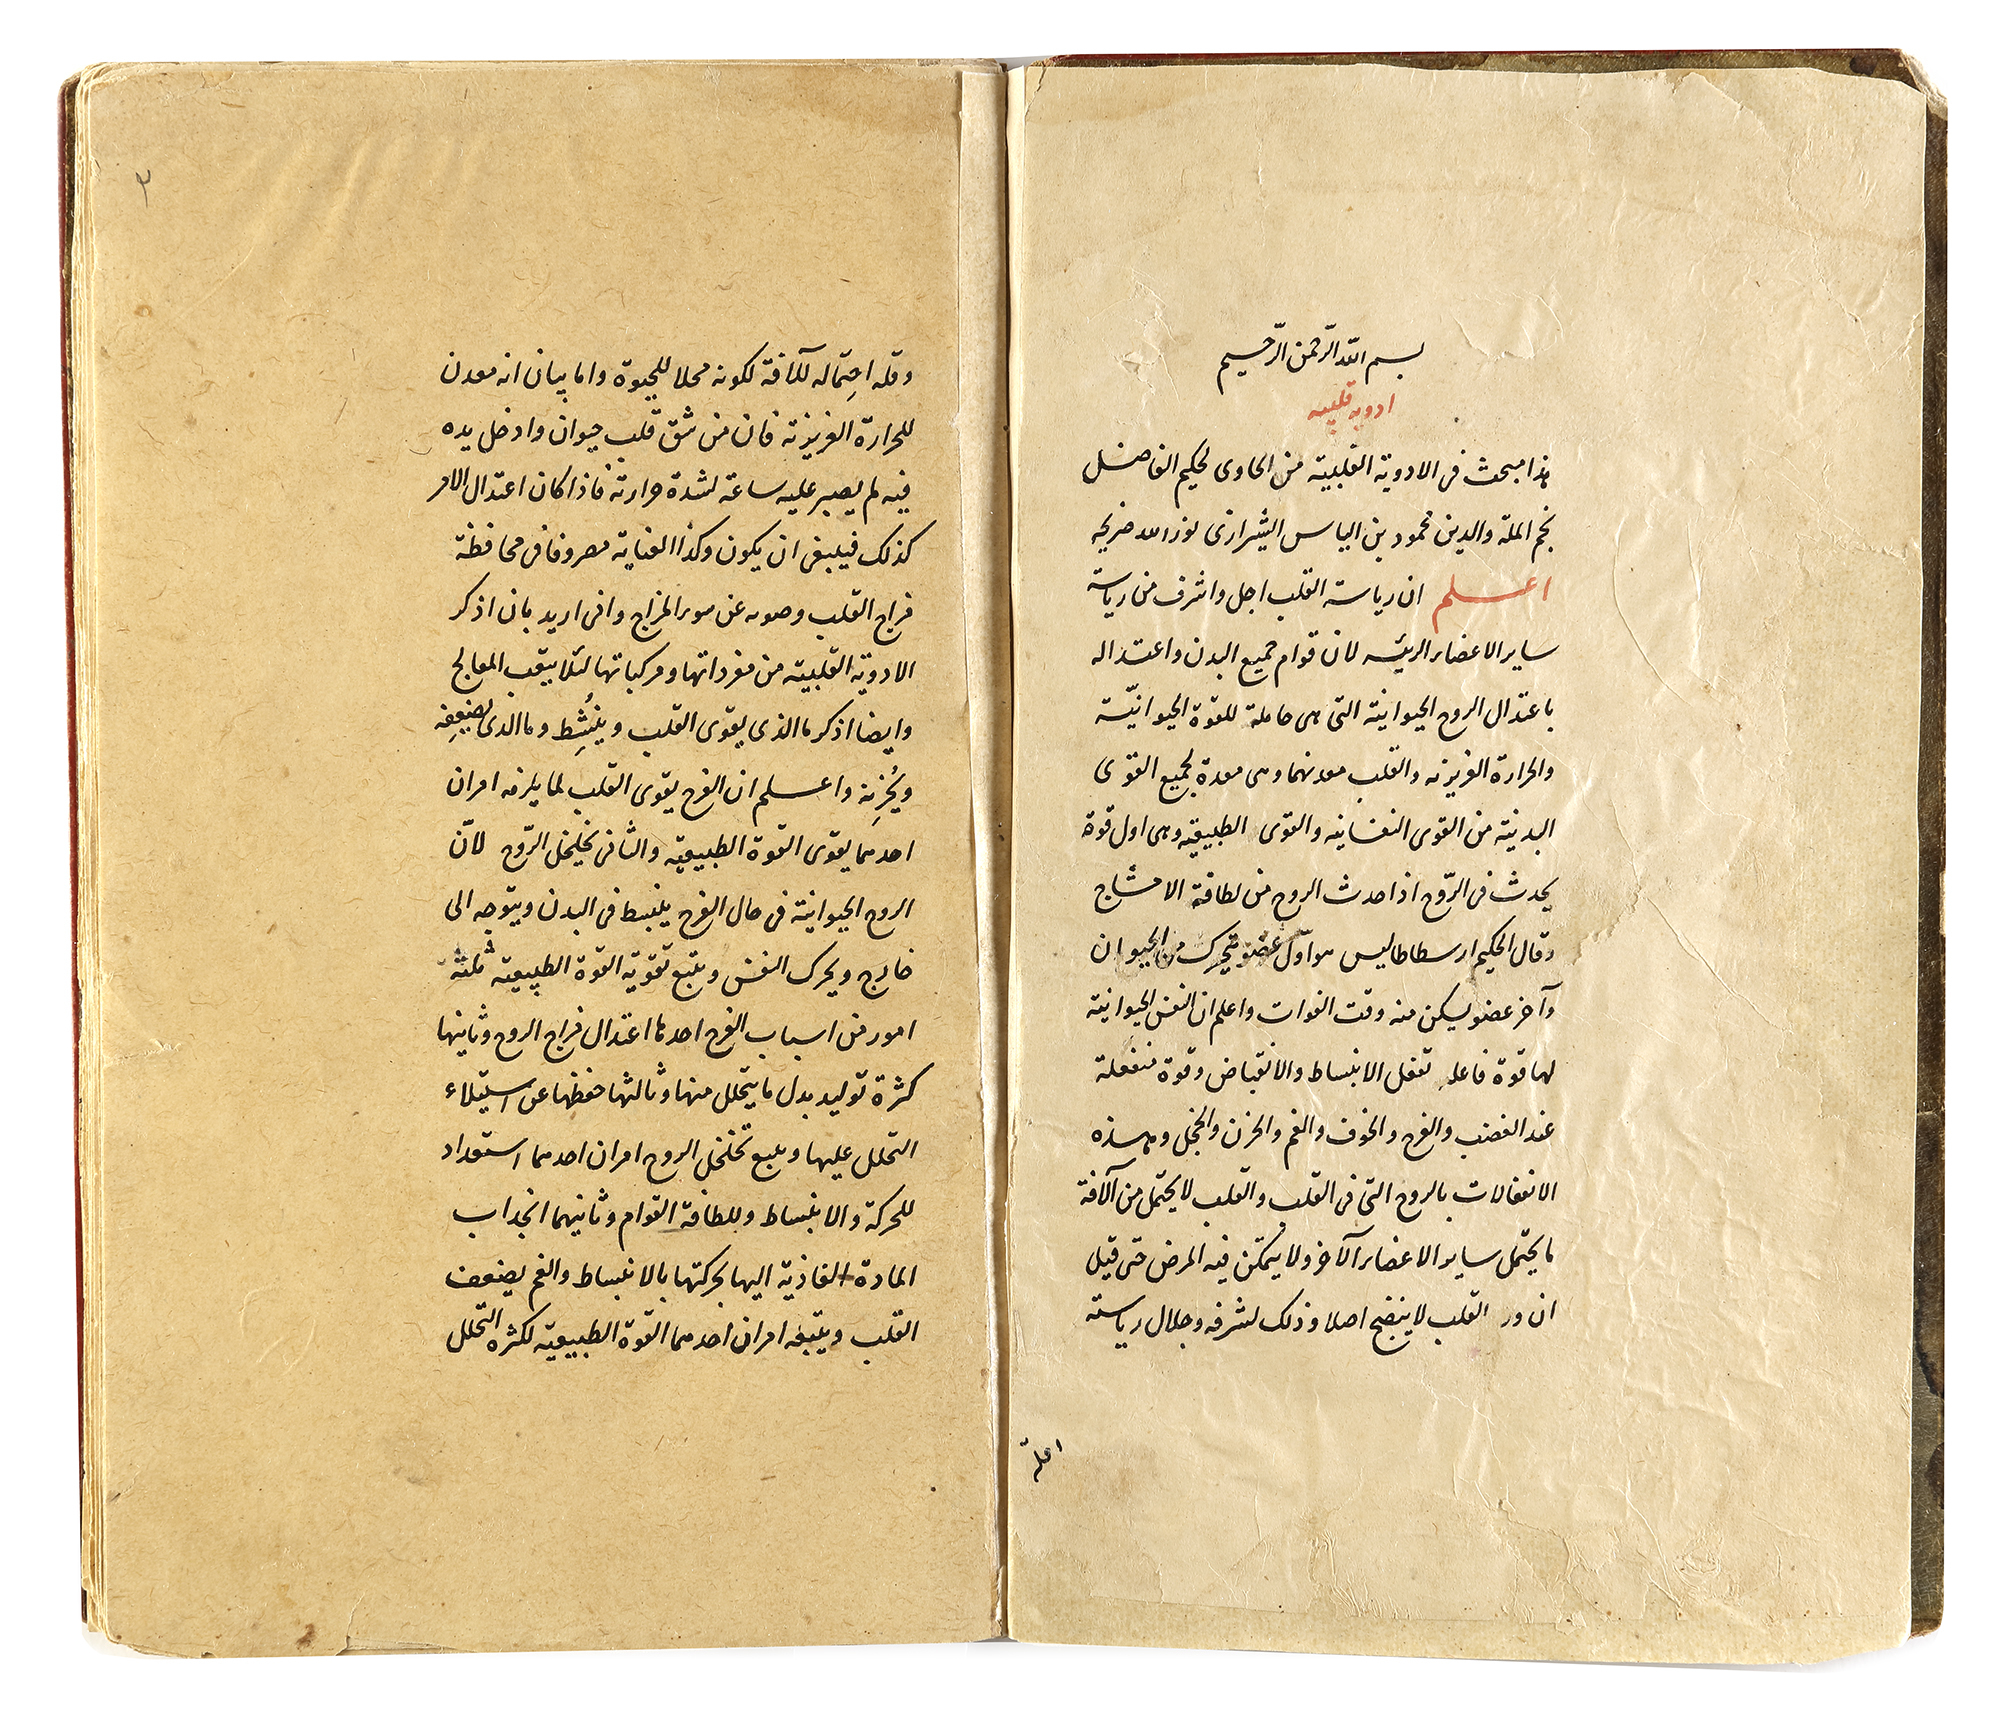 بسم الله الرّحمن الرّحيم
ادويه قلبيه
هذا مبحث فى الادوية القلبية من الحاوى لحكيم الفاضل
نجم الملة والدين محمود بن الياس الشيرازى نور الله ضريحه
اعلم ان رياسة القلب اجل واشرف من رياسة
ساير الاعضاء الرئيسه لان قوام جميع البدن واعتداله
باعتدال الروح الحيوانية التى هى حاملة للقوة الحيوانيّة
والحرارة الغريزيه والقلب معدنهما وهى معدة لجميع القوى
البدنية من القوى النفسانيه والقوى الطبيعيه وهى اول قوة
يحدث فى الرّوح اذا حدث الروح من لطافة الامشاج
وقال الحكيم ارسطاطاليس هو اوّل عضو يتحرك من الحيوان
وآخر عضو يسكن منه وقت الفوات واعلم ان النفس الحيوانية
لها قوة فاعله تفعل الانبساط والانقباض وقوة منفعلة
عند الغضب والفرح والخوف والغم والحزن والخجل وهذه
الانفعالات بالروح التى فى القلب والقلب لا يحتمل من الآفة
ما يحتمل ساير الاعضاء الآخر ولا يتمكن فيه المرض حتى قيل
ان ور القلب لا ينضج اصلا وذلك لشرفه وجلال رياسته
وقله احتماله للآفة لكونه محلا للحيوة واما بيان انه معدن
للحرارة الغريزية فان من شق قلب حيوان وادخل يده
فيه لم يصبر عليه ساعة لشدة حرارته فاذا كان اعتدال الامر
كذلك فينبغى ان يكون وكذا العناية مصروفا فى محافظة
مزاج القلب وصونه عن سوء المزاج وانى اريد بان اذكر
الادوية القلبية من مفرداتها ومركباتها لئلا يتعب المعالج
وايضا اذكر ما الذى يقوى القلب وينُشِط وما الذى يضعِفه
ويُحزِنه واعلم ان الفرح يقوى القلب لما يلزمه امران
احدهما يقوى القوة الطبيعيه والثانى تخلخل الرّوح لانّ
الروح الحيوانية فى حال الفرح ينبسط فى البدن ويتوجه الى
خارج ويحرك النفس ويتبع تقوية القوة الطبيعيه ثلثه
امور من اسباب الفرح احدها اعتدال مزاج الروح وثانيها
كثرة توليد بدل ما يتحلل منها وثالثها حفظها عن استيلاء
التحلل عليها ويتبع تخلخل الروح امران احدهما استعداد
للحركة والانبساط وللطافة القوام وثانيهما انجذاب
المادة الغاذية اليها بحركتها بالانبساط والغم يضعف
القلب ويتبعه امران احدهما القوة الطبيعيه لكثره التحلل
٢